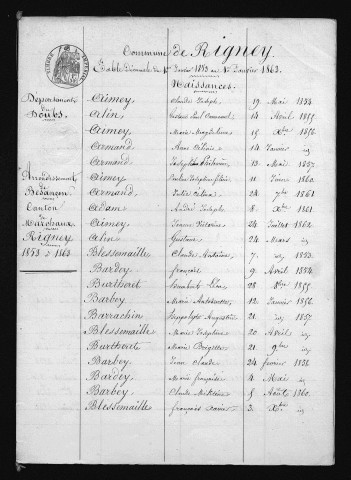 Commune de Rigney.
Table Décennale du 1er Janvier 1853 au 1er Janvier 1863.
Naissances.
Département
du
Doubs
Arrondissement
de
Besançon
Canton
de
Marchaux
Rigney
1853 à 1863
Aimey Claude Joseph 19 Mai 1854
Alin 14 Avril 1855
Aimey Marie Magdeleine 15 Xbre 1856
Armand 14 Janvier id
Armand Joséphine 13 Mai 1857
Aimey 11 1860
Armand 24 7bre 1861
Adam André Joseph 8 Xbre 1861
Aimey Jeanne Victorine 24 Juillet 1862
Alin Gustave 24 Mars id
Blessemaille Claude Antoine 7 id 1853
Bardey françois 9 Avril 1854
Burthoret 28 1855
Barbey Marie Antoinette 12 Janvier 1856
Barrachin hippolyte Augustin 21 id 1857
Blessemaille Marie Joséphine 20 Avril id
Burthoret Marie Brigitte 21 9bre id
Barbey Jean Claude 24 fevrier 1858
Bardey Marie françoise 4 Mai id
Barbey Claude 5 Août 1860
Blessemaille françois Xavier 3 Xbre id